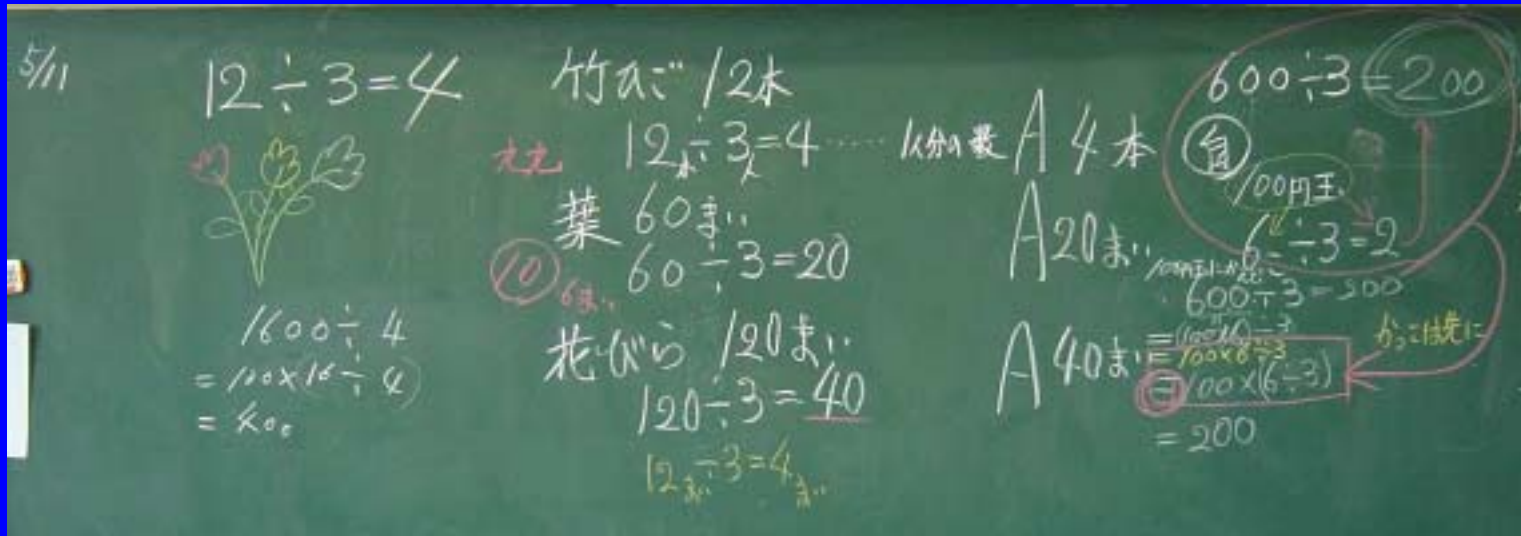 5/11
12÷3=4
1600÷4
=100×(16÷4)
=400
竹ひご 12本
12本÷3人=4……1人分の数
A 4本
葉 60まい
60÷3=20
A 20まい
⑩ 6まい
花びら 120まい
120÷3=40
A 40まい
12まい÷3=4まい
600÷3=200
100円玉
6÷3=2
600÷3=200
=(100×6)÷3
=100×6÷3
=100×(6÷3)
=200
かっこは先に